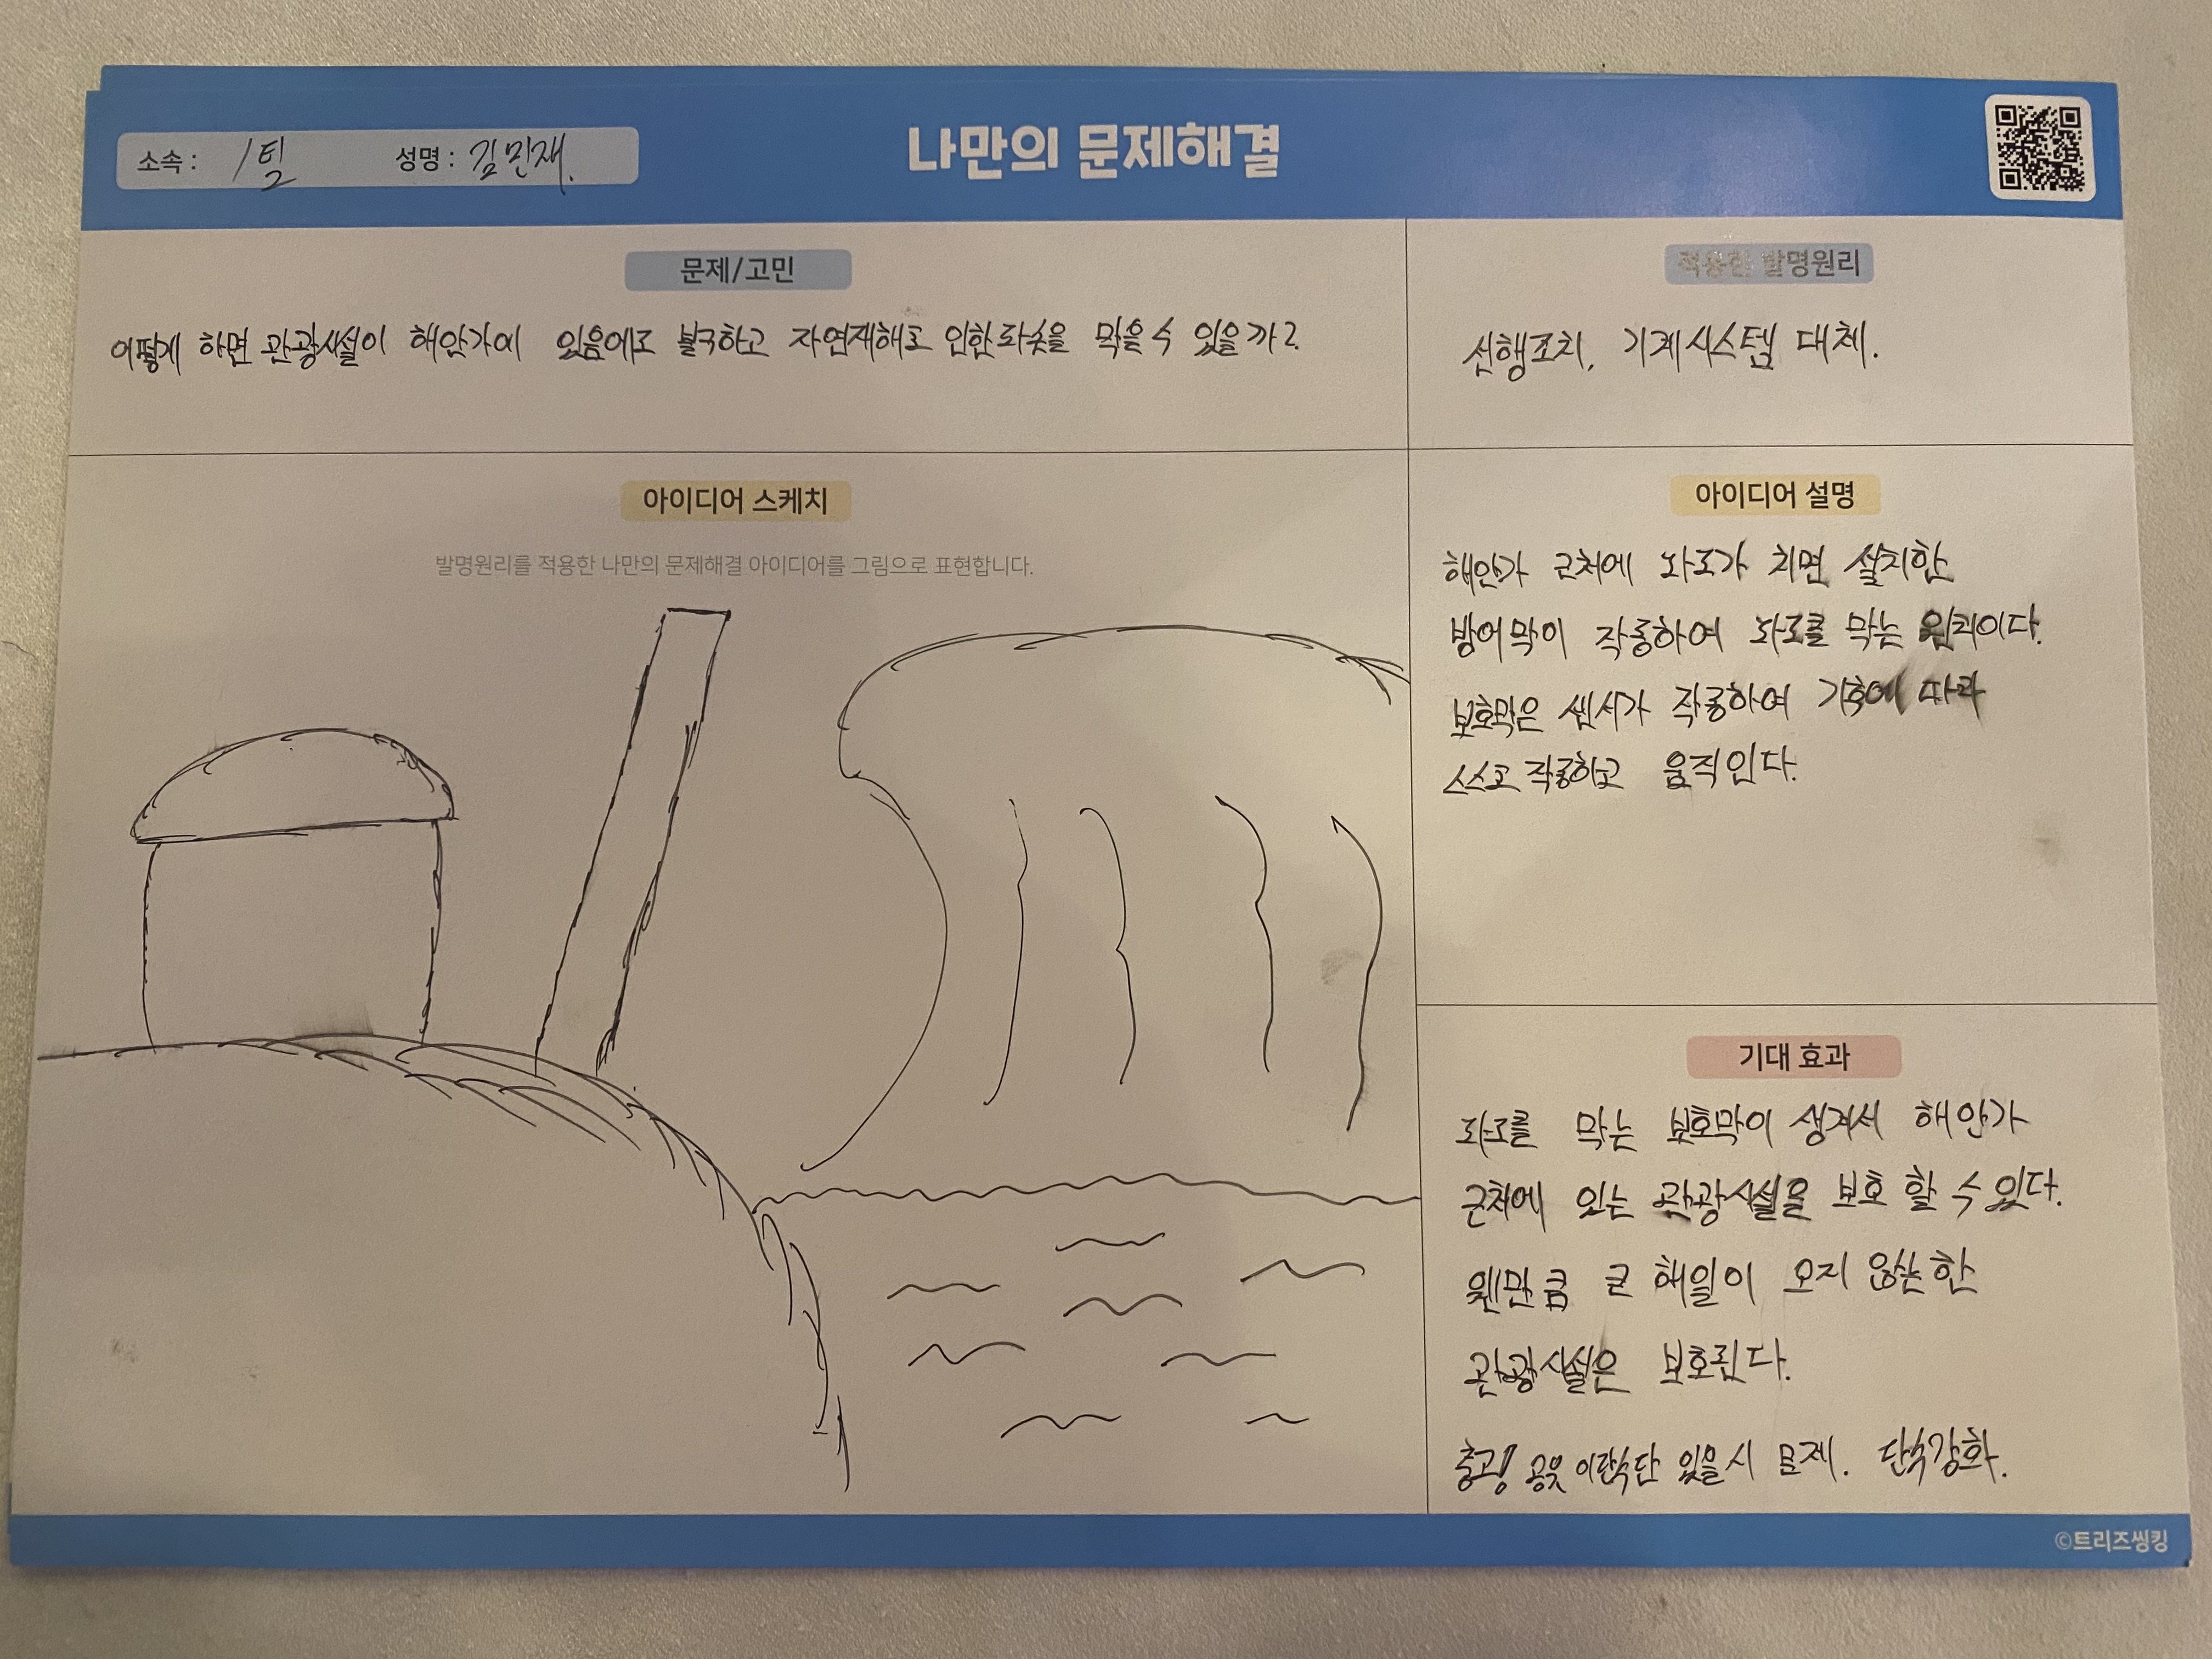 소속 : 1팀 성명 : 김민재.
나만의 문제해결
문제/고민
어떻게 하면 관광시설이 해안가에 있음에도 불구하고 자연재해로 인한 파손을 막을 수 있을까?
적용한 발명원리
선행조치, 기계시스템 대체.
아이디어 스케치
발명원리를 적용한 나만의 문제해결 아이디어를 그림으로 표현합니다.
아이디어 설명
해안가 근처에 파도가 치면 설치한
방어막이 작동하여 파도를 막는 원리이다.
보호막은 센서가 작동하여 기후에 따라
스스로 작동하고 움직인다.
기대 효과
파도를 막는 보호막이 생겨서 해안가
근처에 있는 관광시설을 보호 할 수 있다.
웬만큼 큰 해일이 오지 않는 한
관광시설은 보호된다.
있을 시 문제. 단속강화.
©트리즈씽킹